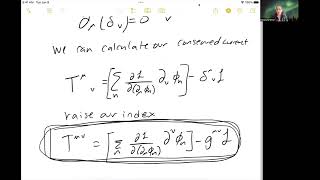 ∂_μ(δ_ν)=0 ν
We can calculate our conserved current
T^μ_ν = [∑_n ∂L/∂(∂_μ φ_n) ∂_ν φ_n] - δ^μ_ν L
raise our index
T^{μν} = [∑_n ∂L/∂(∂_μ φ_n) ∂^ν φ_n] - g^{μν} L